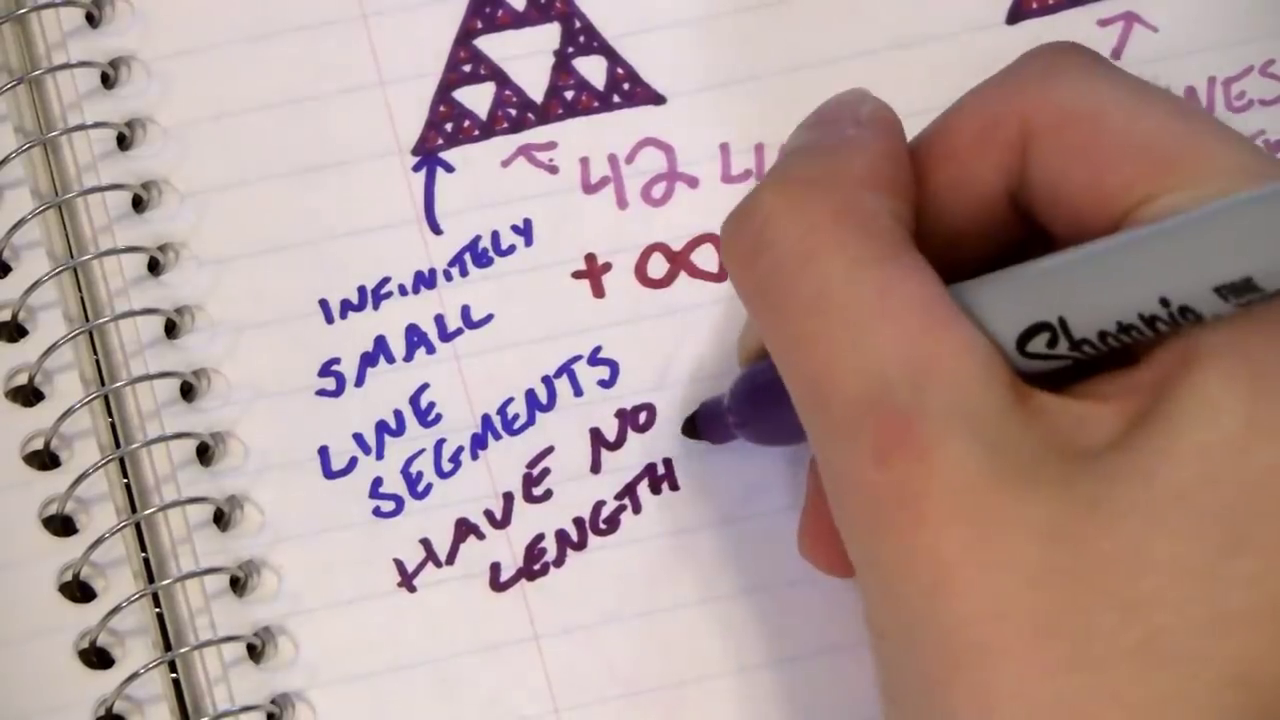 42
+ ∞
INFINITELY
SMALL
LINE
SEGMENTS
HAVE NO
LENGTH
Sharpie
FINE